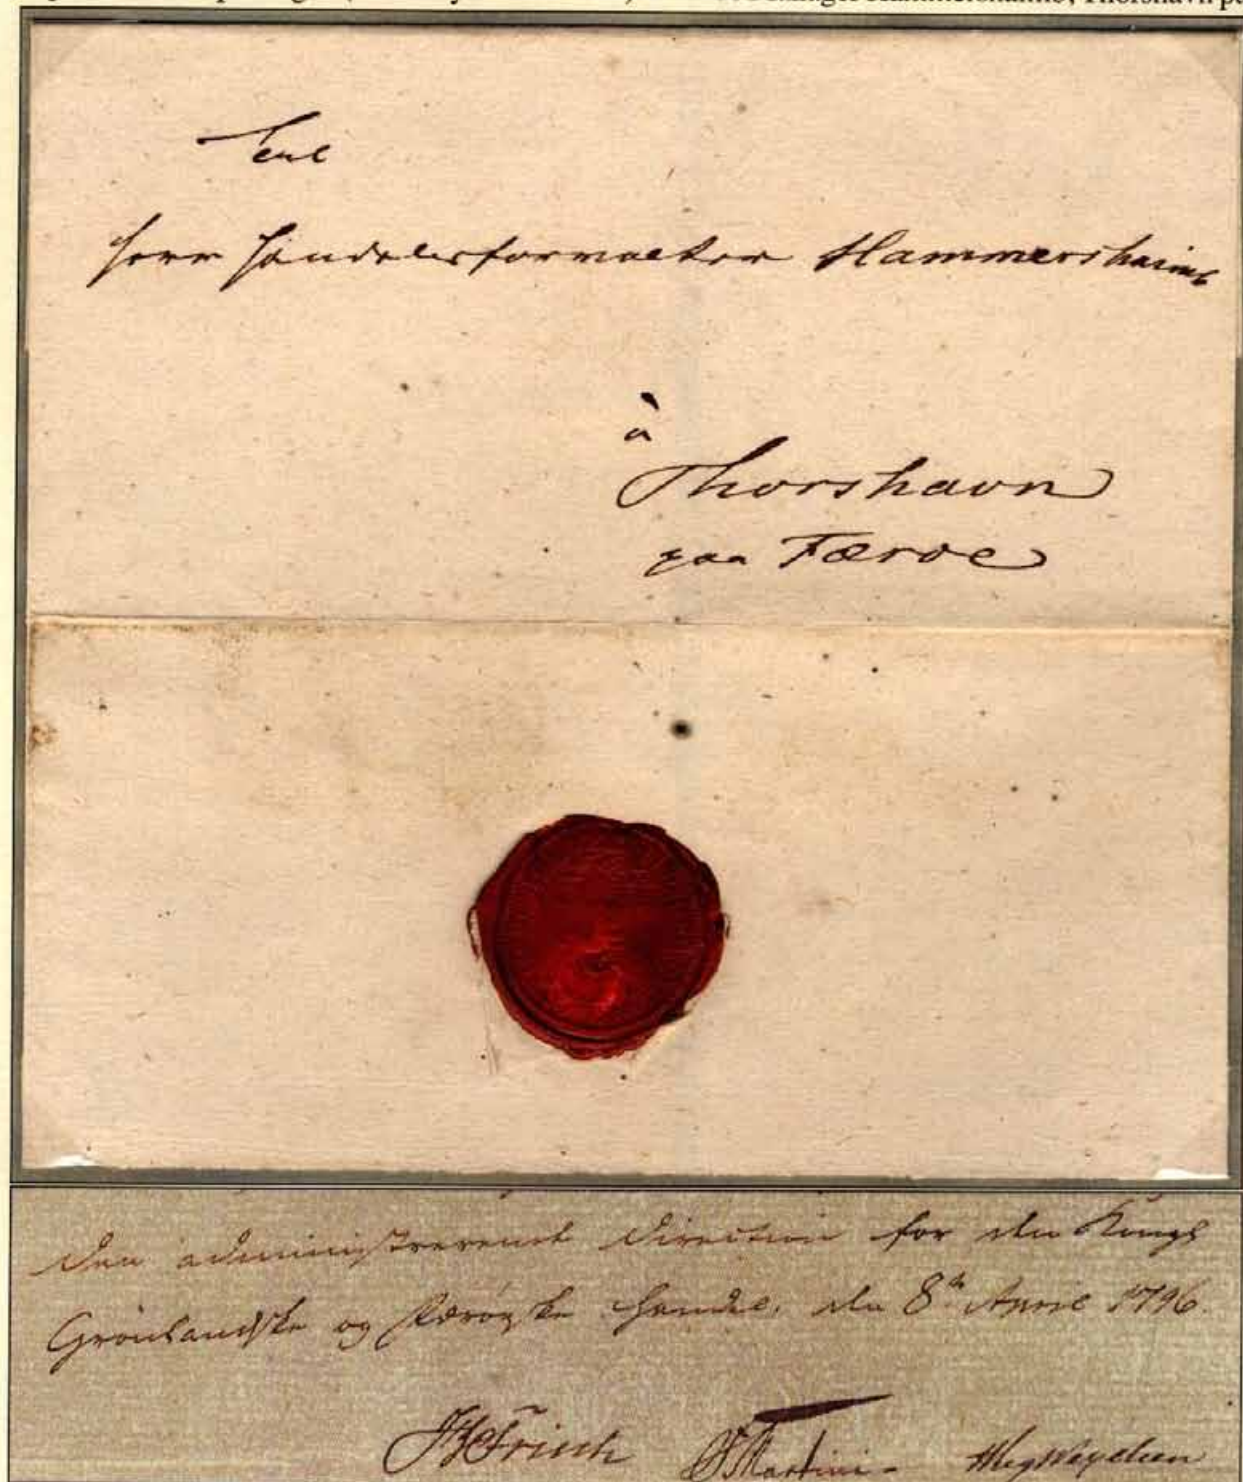 Hammershaimb, Thorshavn på
Til
Herr Handelsforvalter Hammershaimb
à
Thorshavn
paa Færoe
Den administrerende Direction for den Kongl
Grönlandske og Færöeske Handel. den 8de April 1796.
Frisch Martini